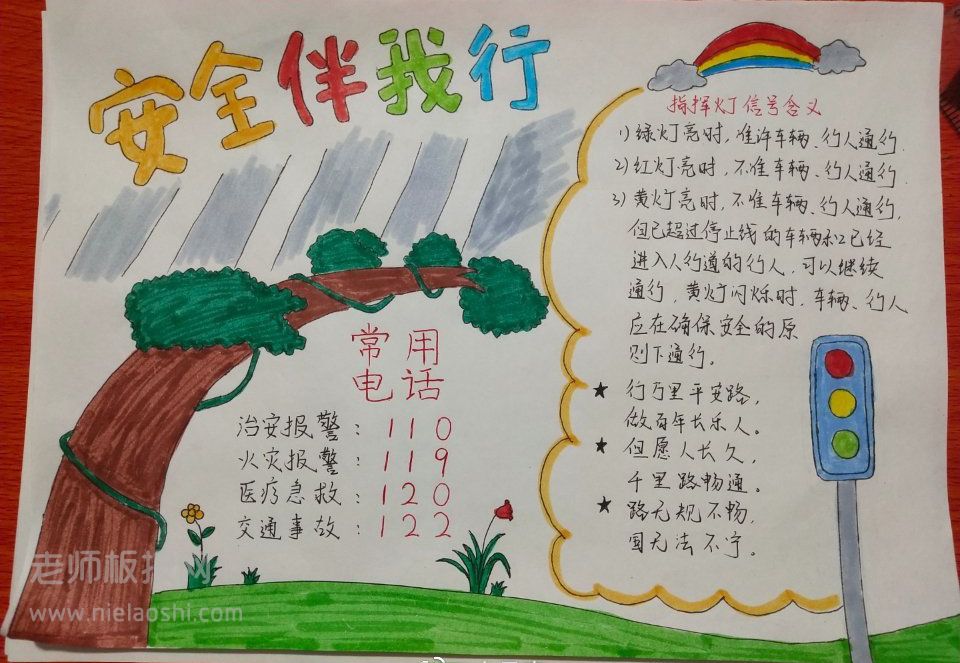 安全伴我行
指挥灯信号含义
1)绿灯亮时,准许车辆、行人通行.
2)红灯亮时,不准车辆、行人通行.
3)黄灯亮时,不准车辆、行人通行,
但已超过停止线的车辆和已经
进入人行道的行人,可以继续
通行,黄灯闪烁时,车辆、行人
应在确保安全的原
则下通行。
★ 行万里平安路,
做百年长乐人。
★ 但愿人长久,
千里路畅通。
★ 路无规不畅,
国无法不宁。
常用
电话
治安报警:110
火灾报警:119
医疗急救:120
交通事故:122
老师板报网
www.nielaoshi.com